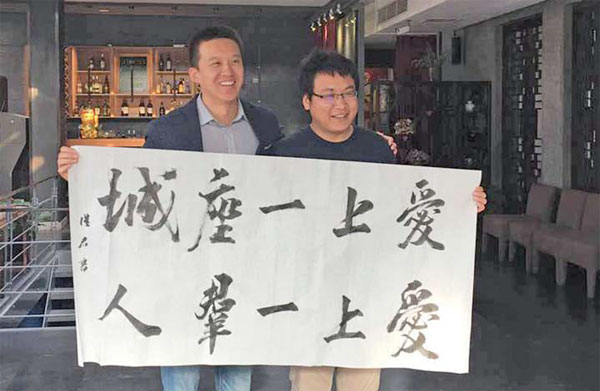 愛上一座城
愛上一羣人